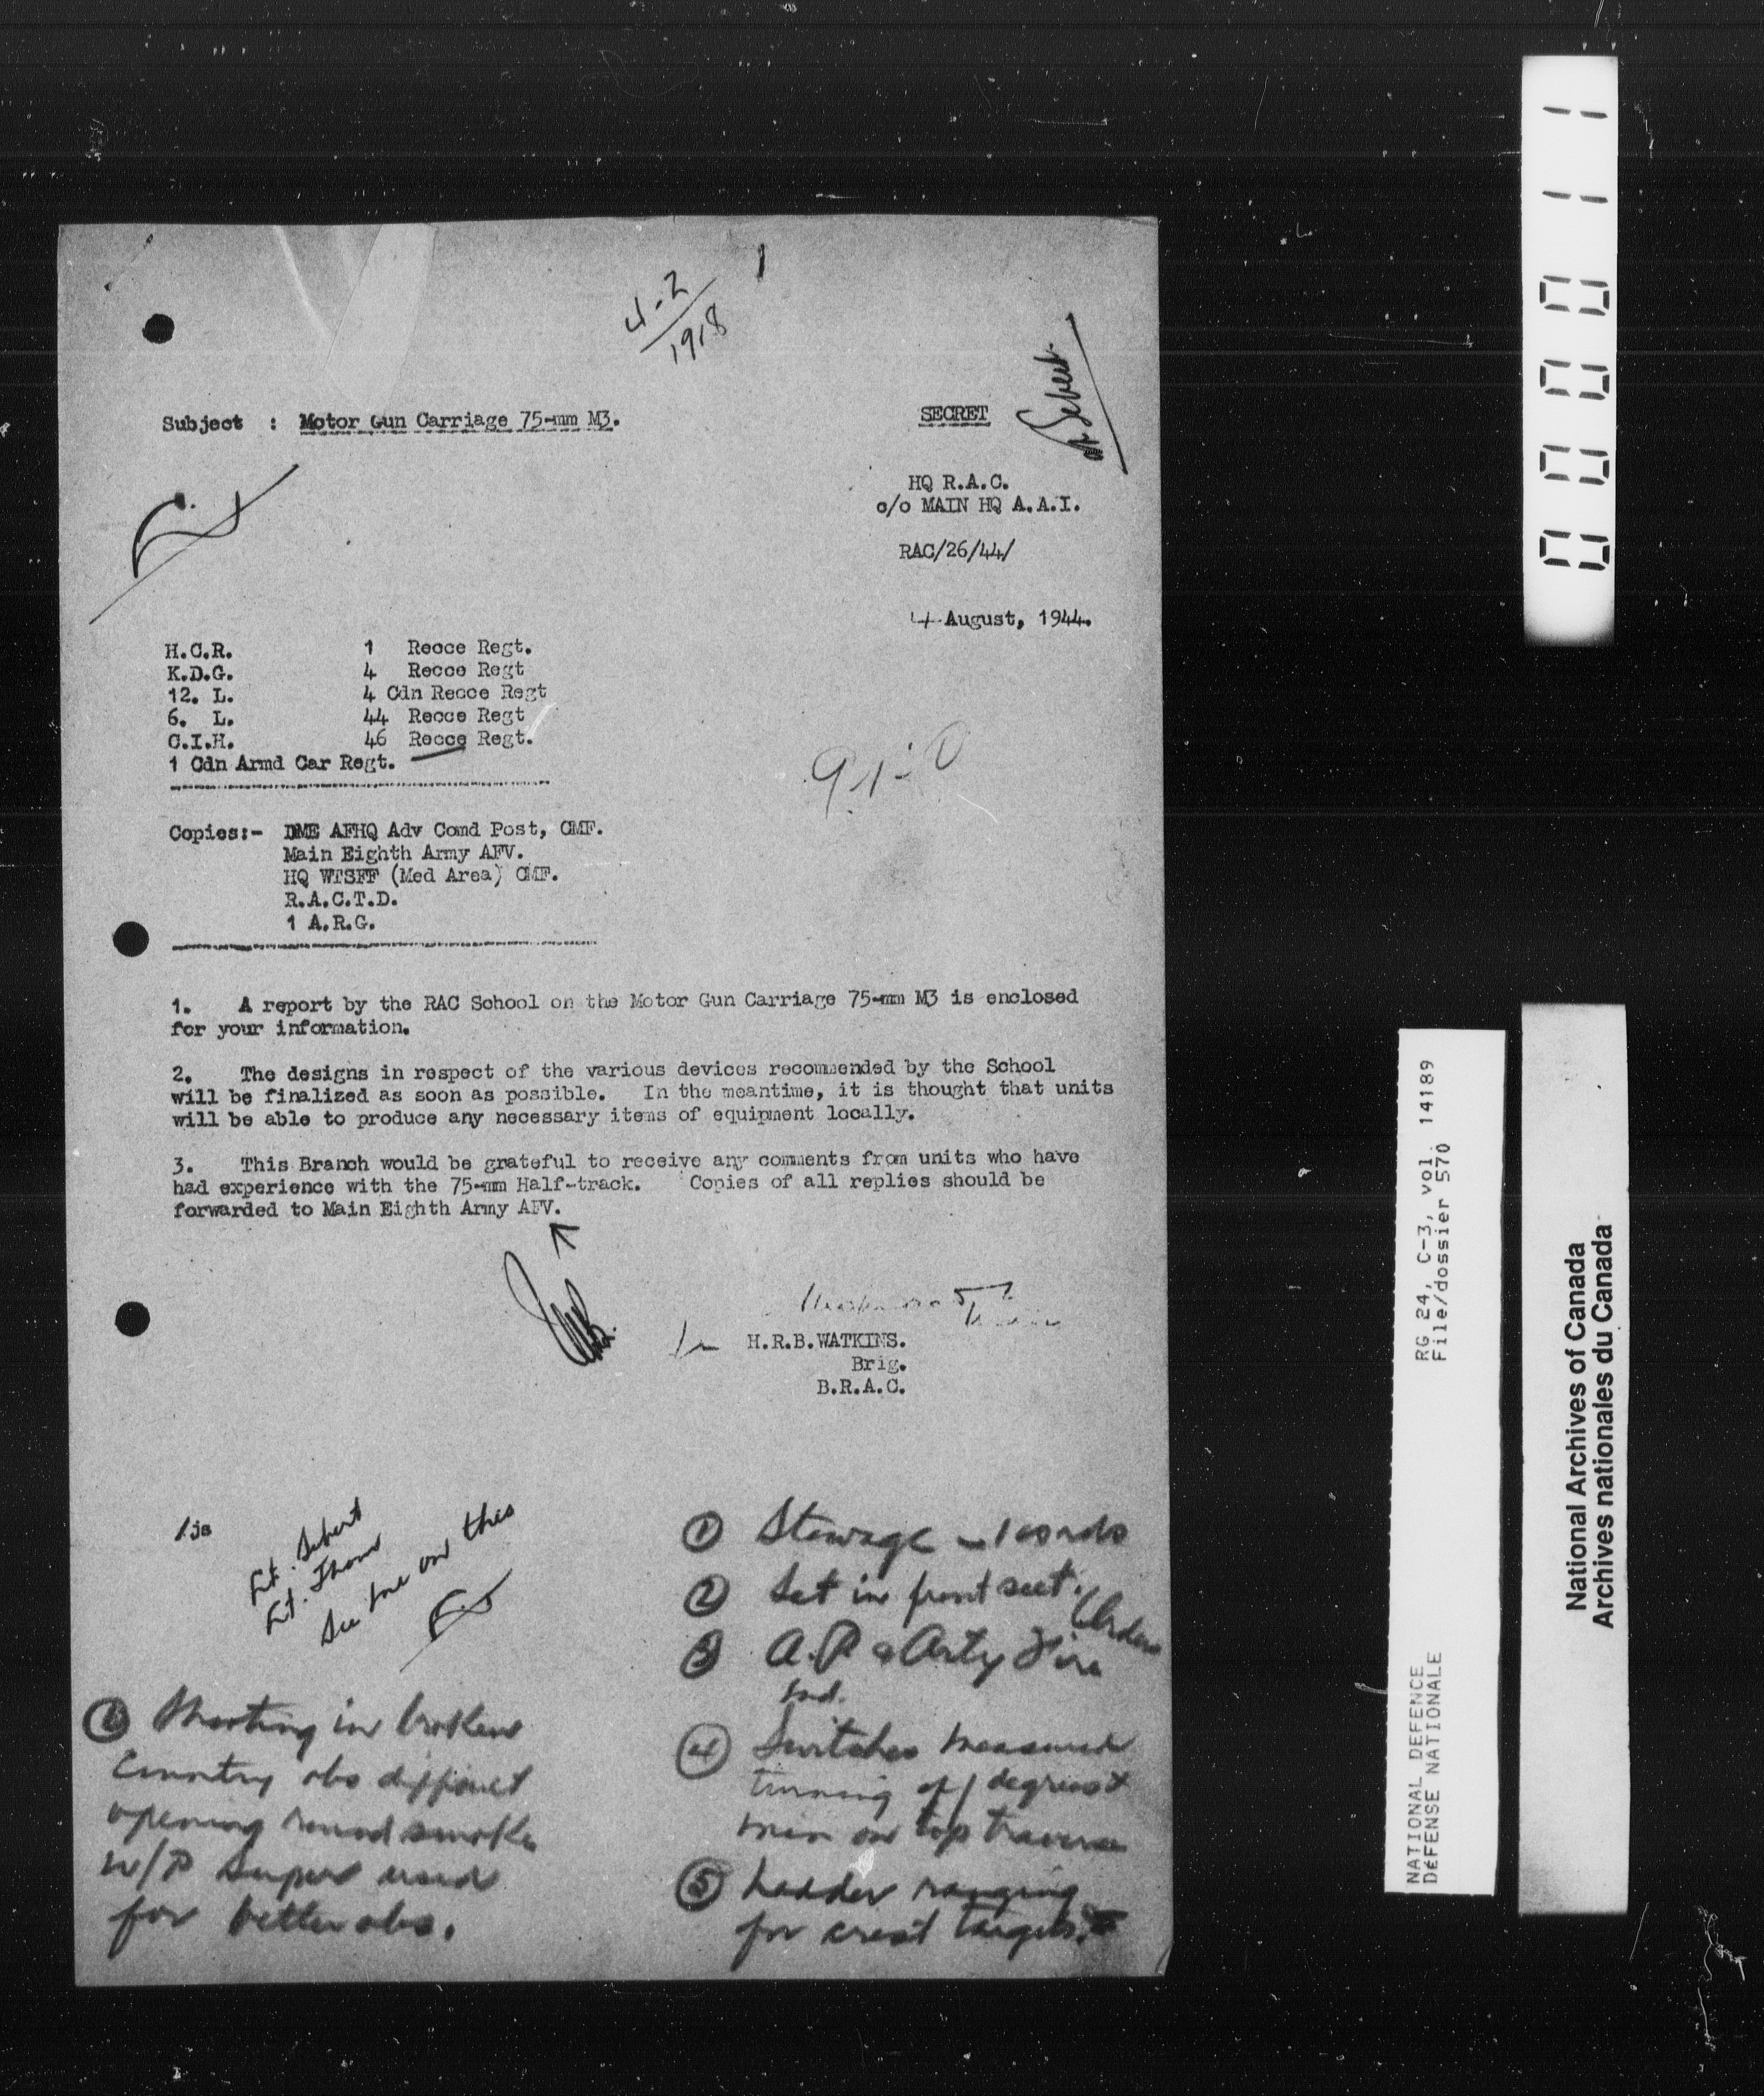 1
4-2
1918
Subject : Motor Gun Carriage 75-mm M3.
SECRET
HQ R.A.C.
c/o MAIN HQ A.A.I.
RAC/26/44/
4 August, 1944.
H.C.R. 1 Recce Regt.
K.D.G. 4 Recce Regt
12. L. 4 Cdn Recce Regt
6. L. 44 Recce Regt
C.I.H. 46 Recce Regt.
1 Cdn Armd Car Regt.
Copies:- DME AFHQ Adv Comd Post, CMF.
Main Eighth Army AFV.
HQ WTSFF (Med Area) CMF.
R.A.C.T.D.
1 A.R.G.
1. A report by the RAC School on the Motor Gun Carriage 75-mm M3 is enclosed
for your information.
2. The designs in respect of the various devices recommended by the School
will be finalized as soon as possible. In the meantime, it is thought that units
will be able to produce any necessary items of equipment locally.
3. This Branch would be grateful to receive any comments from units who have
had experience with the 75-mm Half-track. Copies of all replies should be
forwarded to Main Eighth Army AFV.
H.R.B.WATKINS.
Brig.
B.R.A.C.
/js
Lt. Sebert
Lt.
See me on this
① Stowage
② Set in front seat.
③ A.P & Arty Fire
④ Switches measured
turning off degrees &
min on top traverse
⑤ Ladder ranging
for crest targets.
⑥ Shooting in broken
Country obs difficult
opening round smoke
W/P Super used
for better obs.
000011
RG 24, C-3, vol. 14189
File/dossier 570
NATIONAL DEFENCE
DéFENSE NATIONALE
National Archives of Canada
Archives nationales du Canada